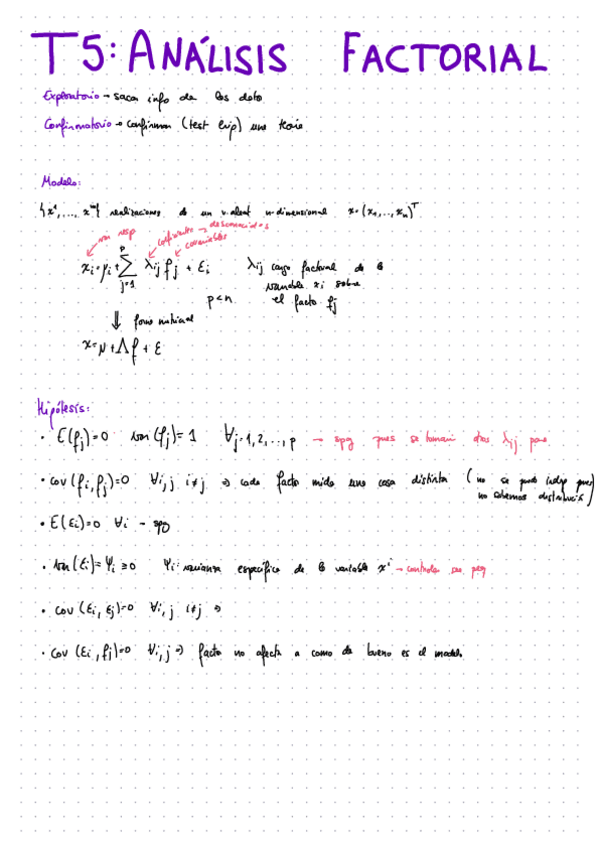 T5: ANÁLISIS FACTORIAL
Exploratorio → sacar info de los datos
Confirmatorio → confirmar (test hip) una teoría
Modelo:
{x¹, ..., xᵐ} realizaciones de un v.aleat n-dimensional x=(x₁, ..., xₙ)ᵀ
var resp
coeficientes → desconocidos
covariables
xᵢ = μᵢ + Σ_{j=1}^{p} λᵢⱼ fⱼ + εᵢ
λᵢⱼ carga factorial de la
variable xᵢ sobre
p<n
el factor fⱼ
⇓ forma matricial
x = μ + Λf + ε
Hipótesis:
• E(fⱼ)=0 var(fⱼ)=1 ∀j=1,2,...,p → spg pues se tomarían λᵢⱼ
• cov(fᵢ,fⱼ)=0 ∀i,j i≠j ⇒ cada factor mide una cosa distinta (no se puede indep pues
no sabemos distribución)
• E(εᵢ)=0 ∀i → spg
• var(εᵢ)=Ψᵢ ≥0 Ψᵢ: varianza específica de la variable xⁱ → controla
• cov(εᵢ, εⱼ)=0 ∀i,j i≠j ⇒
• cov(εᵢ, fⱼ)=0 ∀i,j ⇒ factor no afecta a como de bueno es el modelo